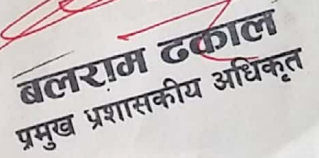 बलराम ढकाल
प्रमुख प्रशासकीय अधिकृत